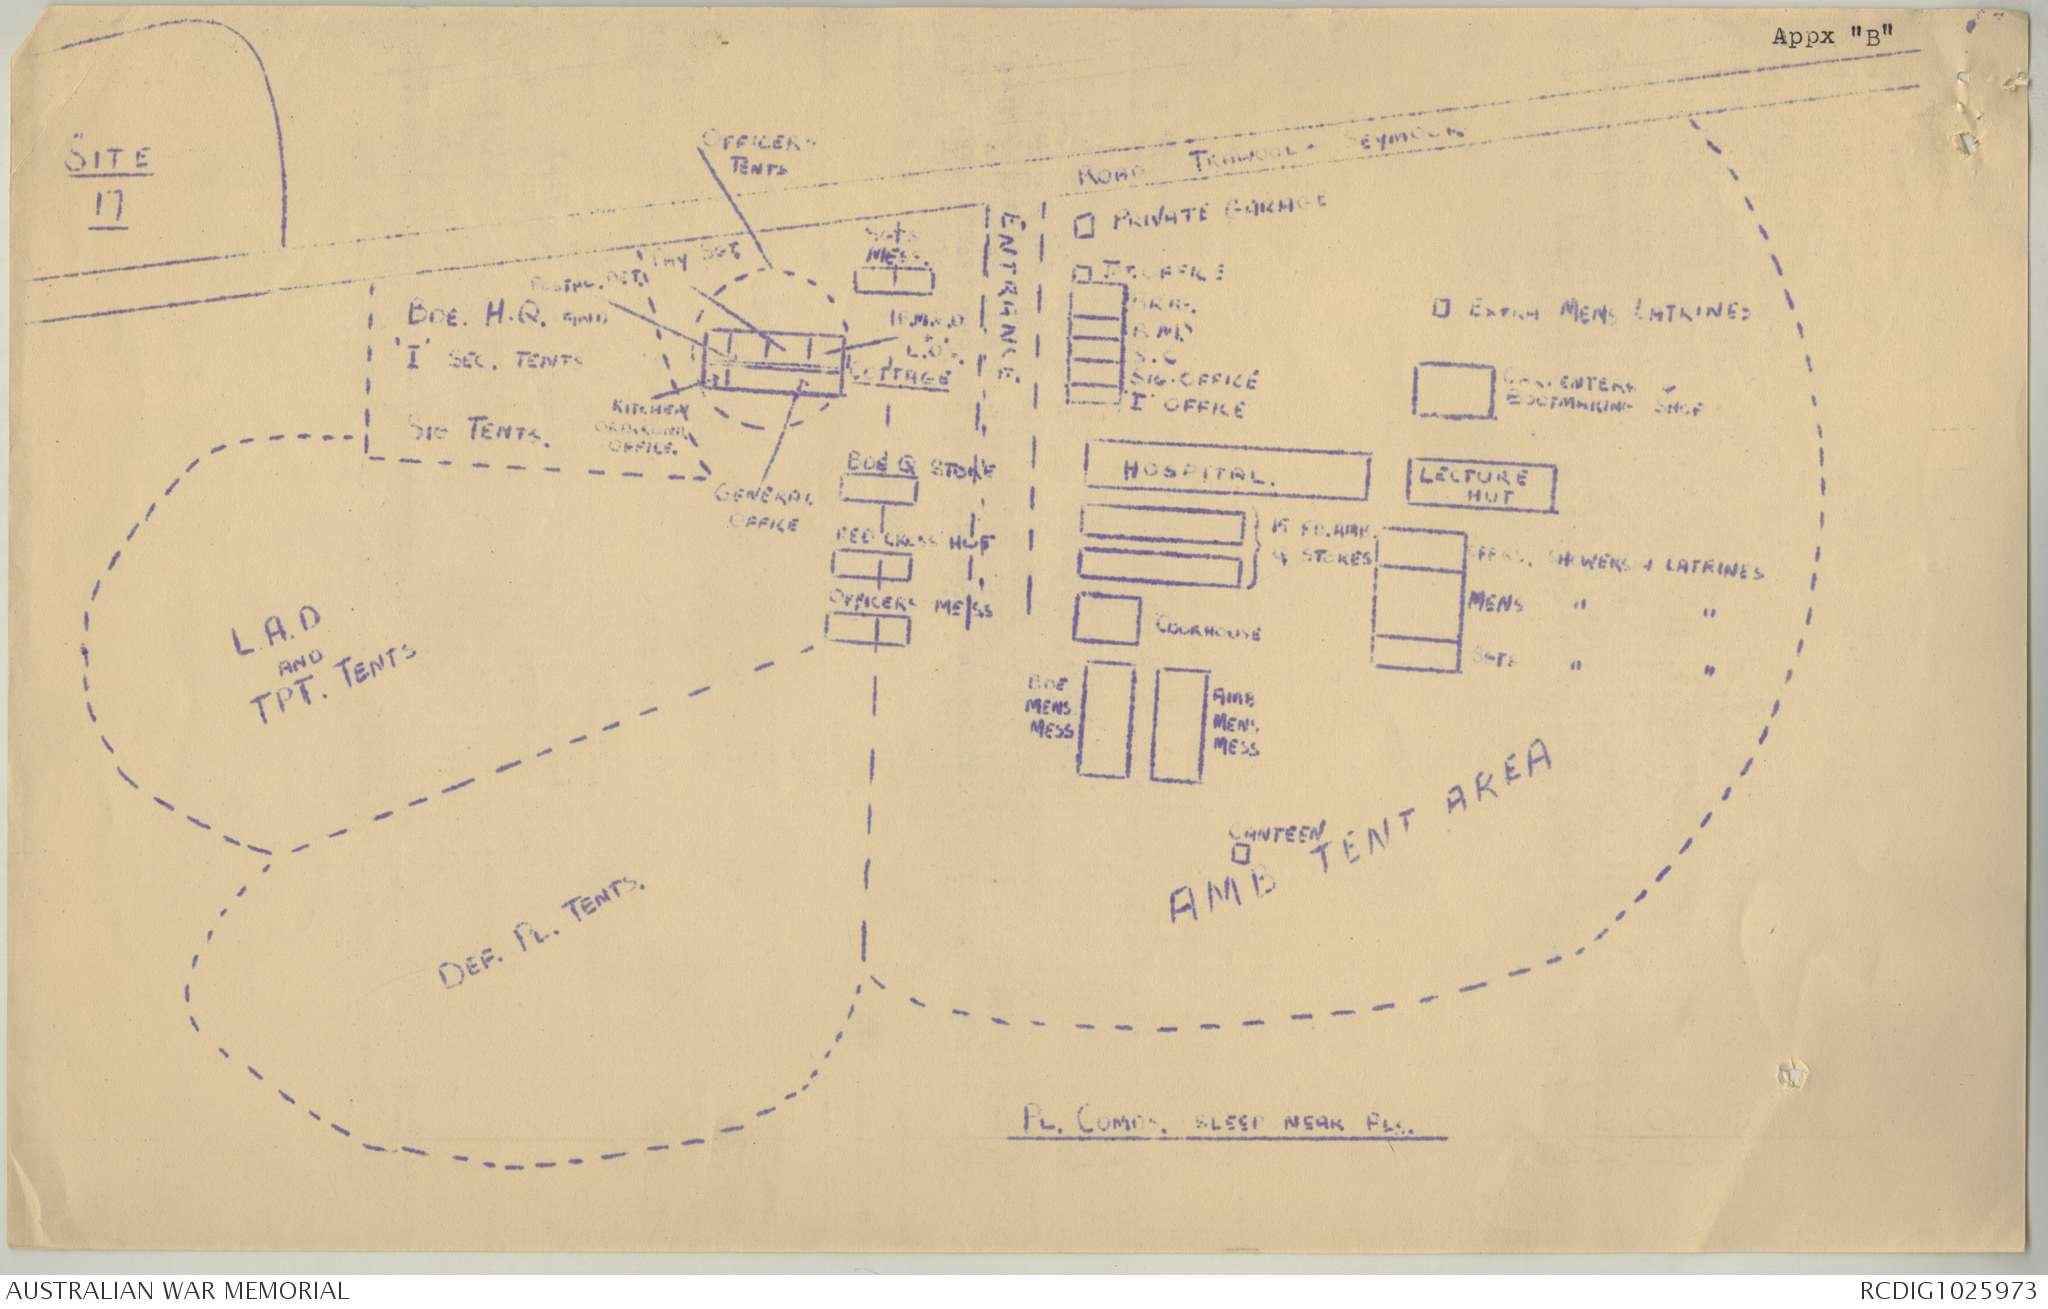 Appx "B"
SITE
17
OFFICERS
TENTS
ROAD TRAWOOL - SEYMOUR
ENTRANCE
PRIVATE GARAGE
SGTS
MESS.
PAY SGT
POSTAL DET.
BDE. H.Q. AND
'I' SEC. TENTS
SIG TENTS.
L.O's.
COTTAGE
KITCHEN
OFFICE.
GENERAL
OFFICE
OFFICE
B.M.
S.C
SIG. OFFICE
'I' OFFICE
EXTRA MENS LATRINES
CARPENTERS &
BOOTMAKING SHOP
BDE Q STORE
HOSPITAL.
LECTURE
HUT
RED CROSS HUT
FD. AMB.
Q STORES
OFFRS. SHOWERS & LATRINES
MENS " "
SGTS " "
OFFICERS MESS
COOKHOUSE
BDE
MENS
MESS
AMB
MENS
MESS
L.A.D
AND
TPT. TENTS
CANTEEN
AMB TENT AREA
DEF. PL. TENTS.
PL. COMDS. SLEEP NEAR PLS.
AUSTRALIAN WAR MEMORIAL
RCDIG1025973